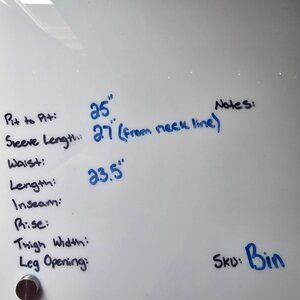 Pit to Pit: 25" Notes:
Sleeve Length: 27" (from neck line)
Waist:
Length: 23.5"
Inseam:
Rise:
Thigh Width:
Leg Opening: SKU: Bin